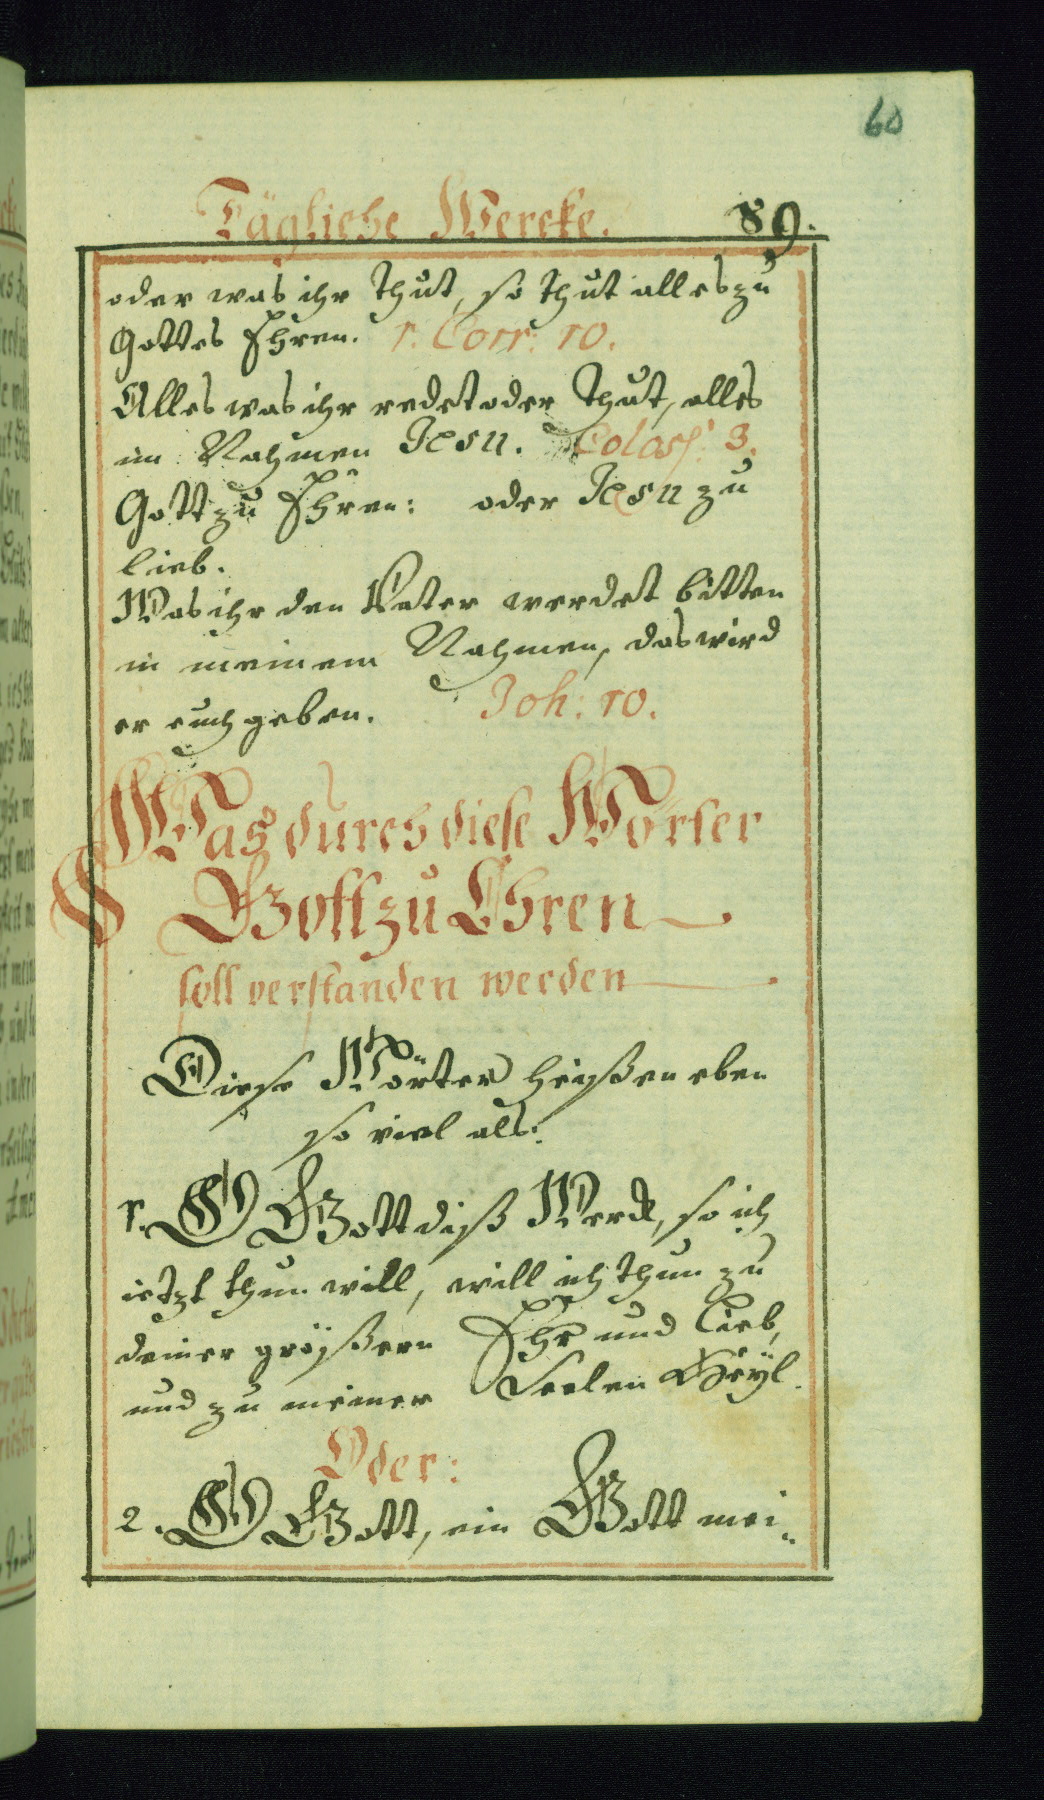 60
Tägliche Wercke. 89.
oder was ihr thut, so thut alles zu
Gottes Ehren. 1. Corr: 10.
Alles was ihr redet oder thut, alles
im Nahmen Jesu. Colass: 3.
Gott zu Ehren: oder Jesu zu
lieb.
Was ihr den Vater werdet bitten
in meinem Nahmen, das wird
er euch geben. Joh: 10.
Was durch diese Wörter
Gott zu Ehren
soll verstanden werden
Diese Wörter heyßen eben
so viel als:
1. O Gott diß Werck, so ich
ietzt thun will, will ich thun zu
deiner größern Ehr und Lieb,
und zu meiner Seelen Heyl.
Oder:
2. O Gott, ein Gott mei-